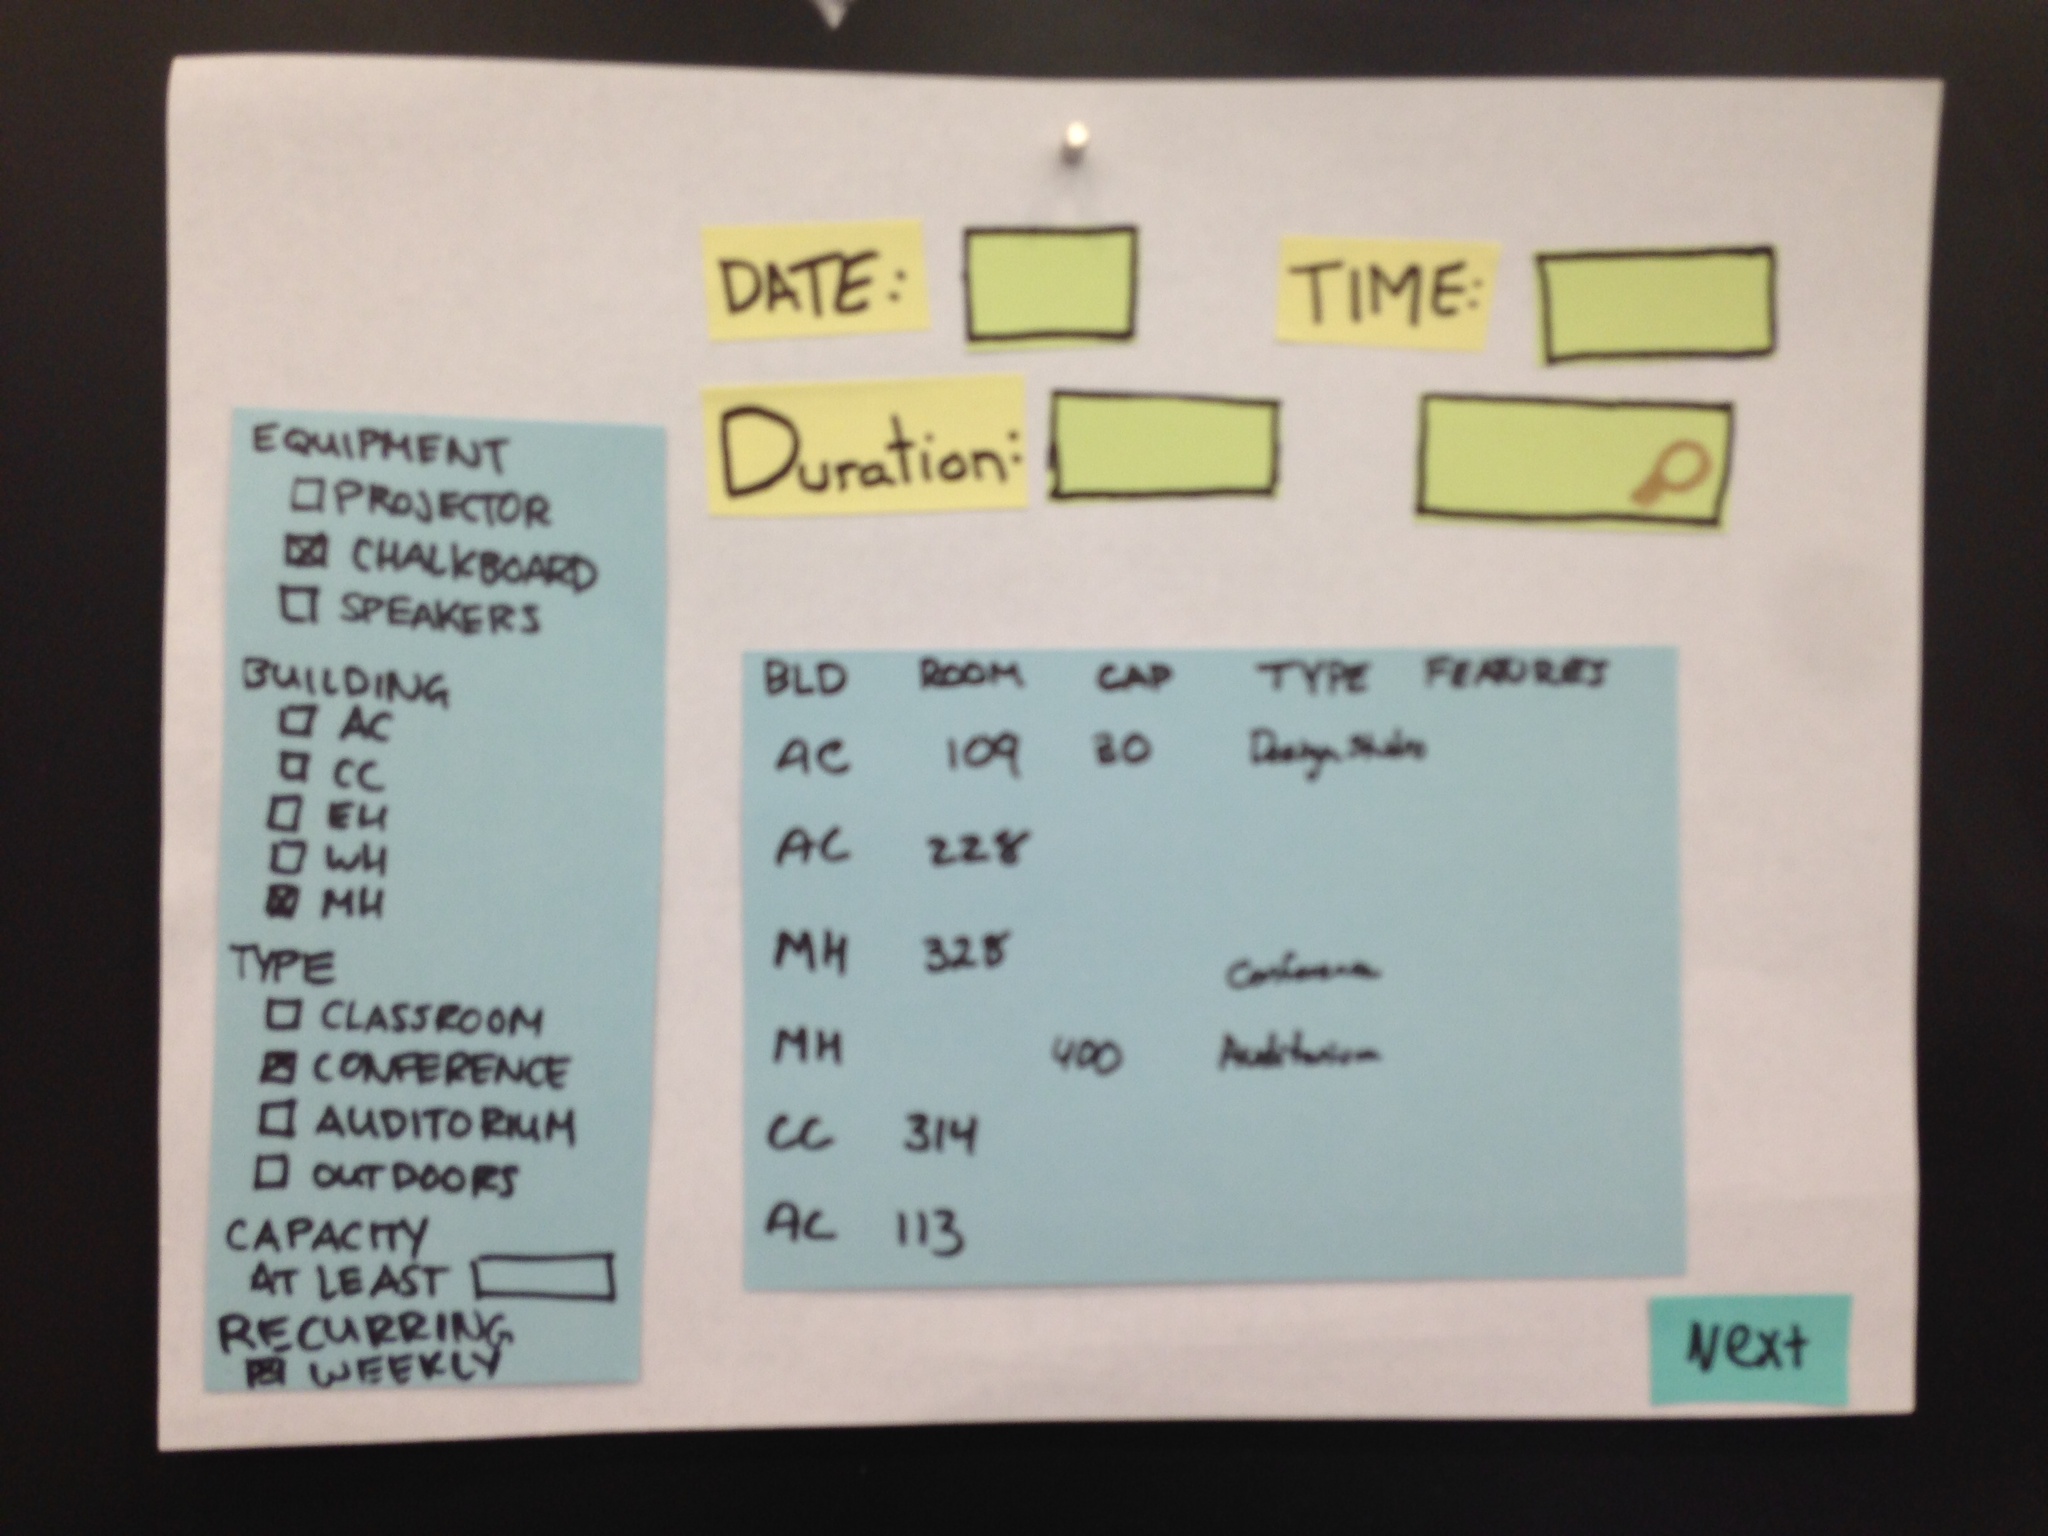 DATE: TIME:
Duration:
EQUIPMENT
PROJECTOR
CHALKBOARD
SPEAKERS
BUILDING
AC
CC
EH
WH
MH
TYPE
CLASSROOM
CONFERENCE
AUDITORIUM
OUTDOORS
CAPACITY
AT LEAST
RECURRING
WEEKLY
BLD ROOM CAP TYPE FEATURES
AC 109 30 Design Studio
AC 228
MH 328 Conference
MH 400 Auditorium
CC 314
AC 113
Next